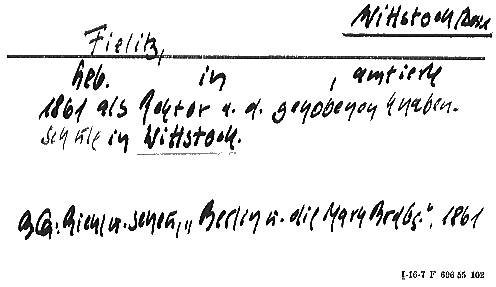 Wittstock/Dosse
Fielitz,
geb. in , amtierte
1861 als Rektor a. d. gehobenen Knaben-
schule in Wittstock.
BQ: Riehl u. Scheu, "Berlin u. die Mark Brdbg.", 1861
I-16-7 F 696 55 102